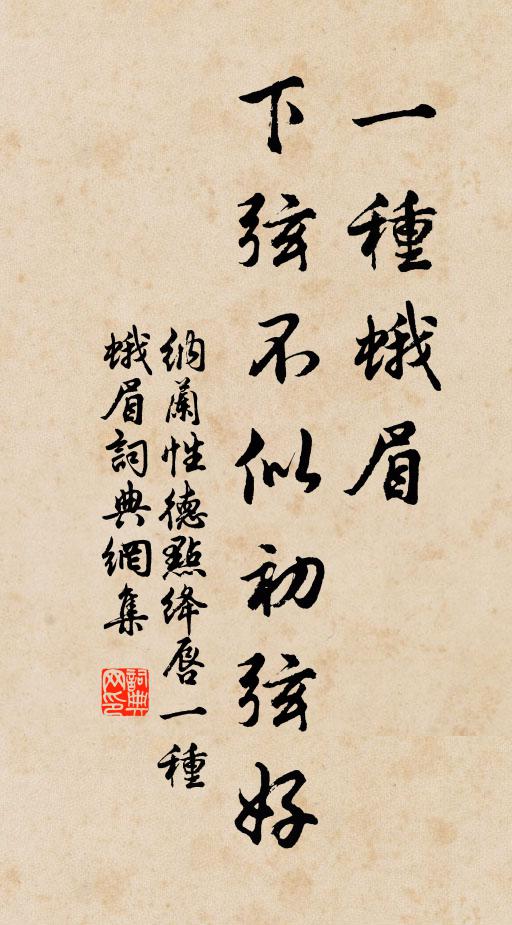 一種蛾眉
下弦不似初弦好
納蘭性德點絳唇一種
蛾眉詞典網集
詞典
網印